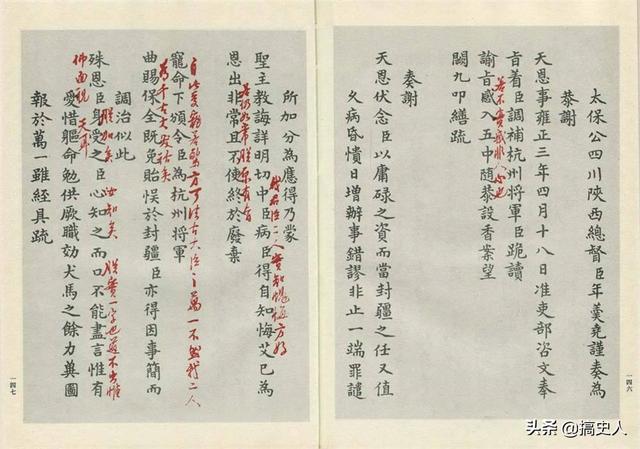 太保公四川陝西總督臣年羹堯謹奏為
恭謝
天恩事雍正三年四月十八日准吏部咨文奉
旨着臣調補杭州將軍臣跪讀
若不實感非人心也
諭旨感入五中隨恭設香案望
闕九叩繕疏
奏謝
天恩伏念臣以庸碌之資而當封疆之任又值
久病昏憒日增辦事錯謬非止一端罪譴
一四六
所加分為應得乃蒙
我君臣二人實知愧悔方好
聖主教誨詳明切中臣病臣得自知悔艾已為
恩出非常且不使終於廢棄
寵命下頒令臣為杭州將軍
萬一不然我二人
為千古大笑話矣
曲賜保全既免貽悞於封疆臣亦得因事簡而
調治似此
朕加矣 汝知矣 朕實一字也道不出惟
殊恩臣身受之臣心知之而口不能盡言惟有
愛惜軀命勉供厥職効犬馬之餘力兾圖
報於萬一雖經具疏
一四七
头条 @搞史人